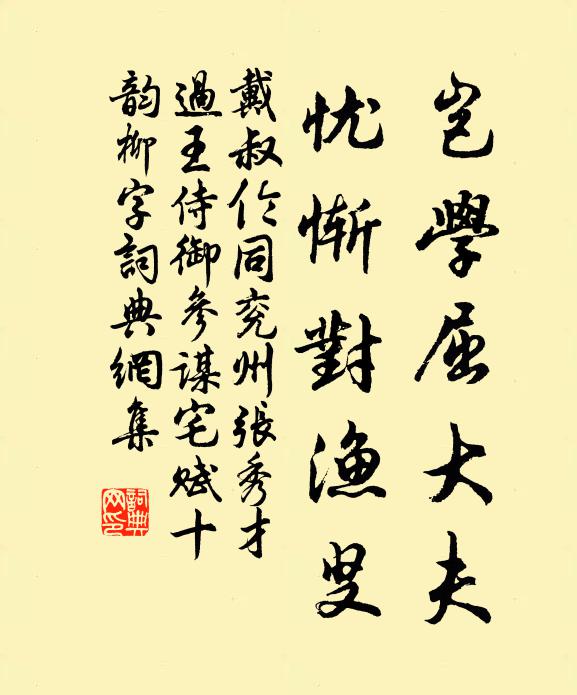 岂學屈大夫
忧惭對漁叟
戴叔伦同兖州張秀才
過王侍御參謀宅賦十
韵柳字詞典網集
詞典网印